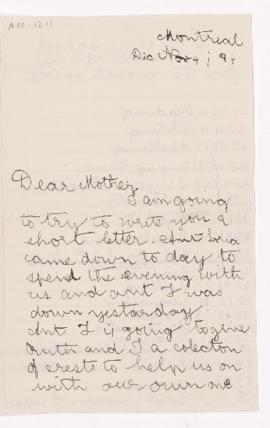 ACC. 1211
Montreal
Dec 9
Dear Mother,
I am going
to try to write you a
short letter. Ant
came down to day to
spend the evening with
us and ant F was
down yestarday.
Ant F is going to give
and I a colection
of crests to help us on
with our own one